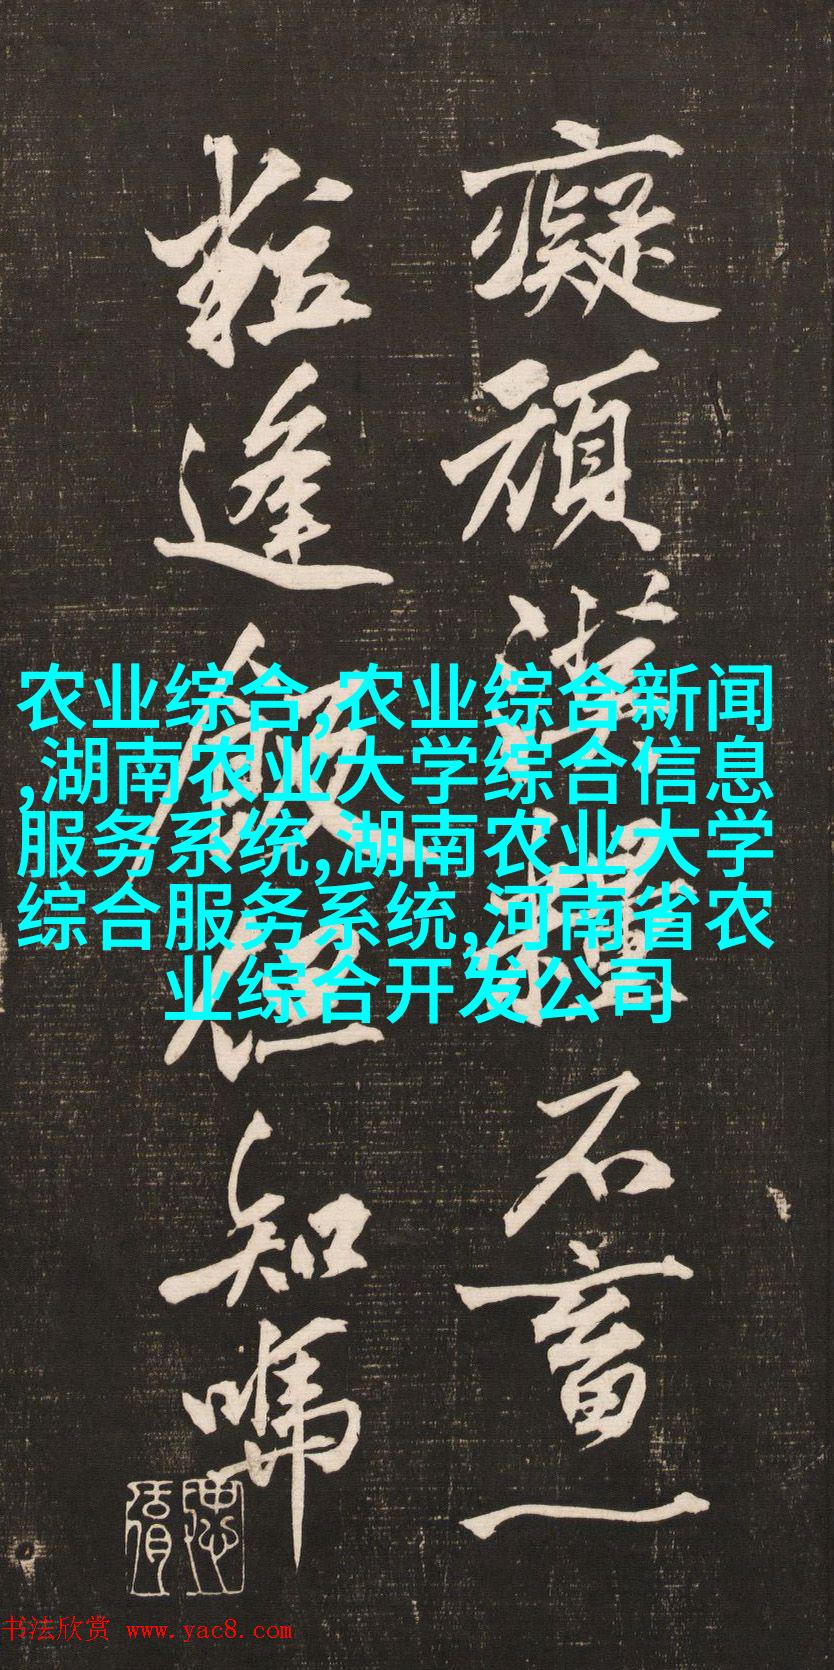 癡頑石畜一
逢飯知
农业综合,农业综合新闻
,湖南农业大学综合信息
服务系统,湖南农业大学
综合服务系统,河南省农
业综合开发公司
书法欣赏 www.yac8.com